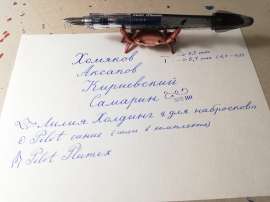 Хомяков
Аксаков
Киреевский
Самарин
Лилия Холдинг для набросков
Pilot синие (шли в комплекте)
Pilot Plumix